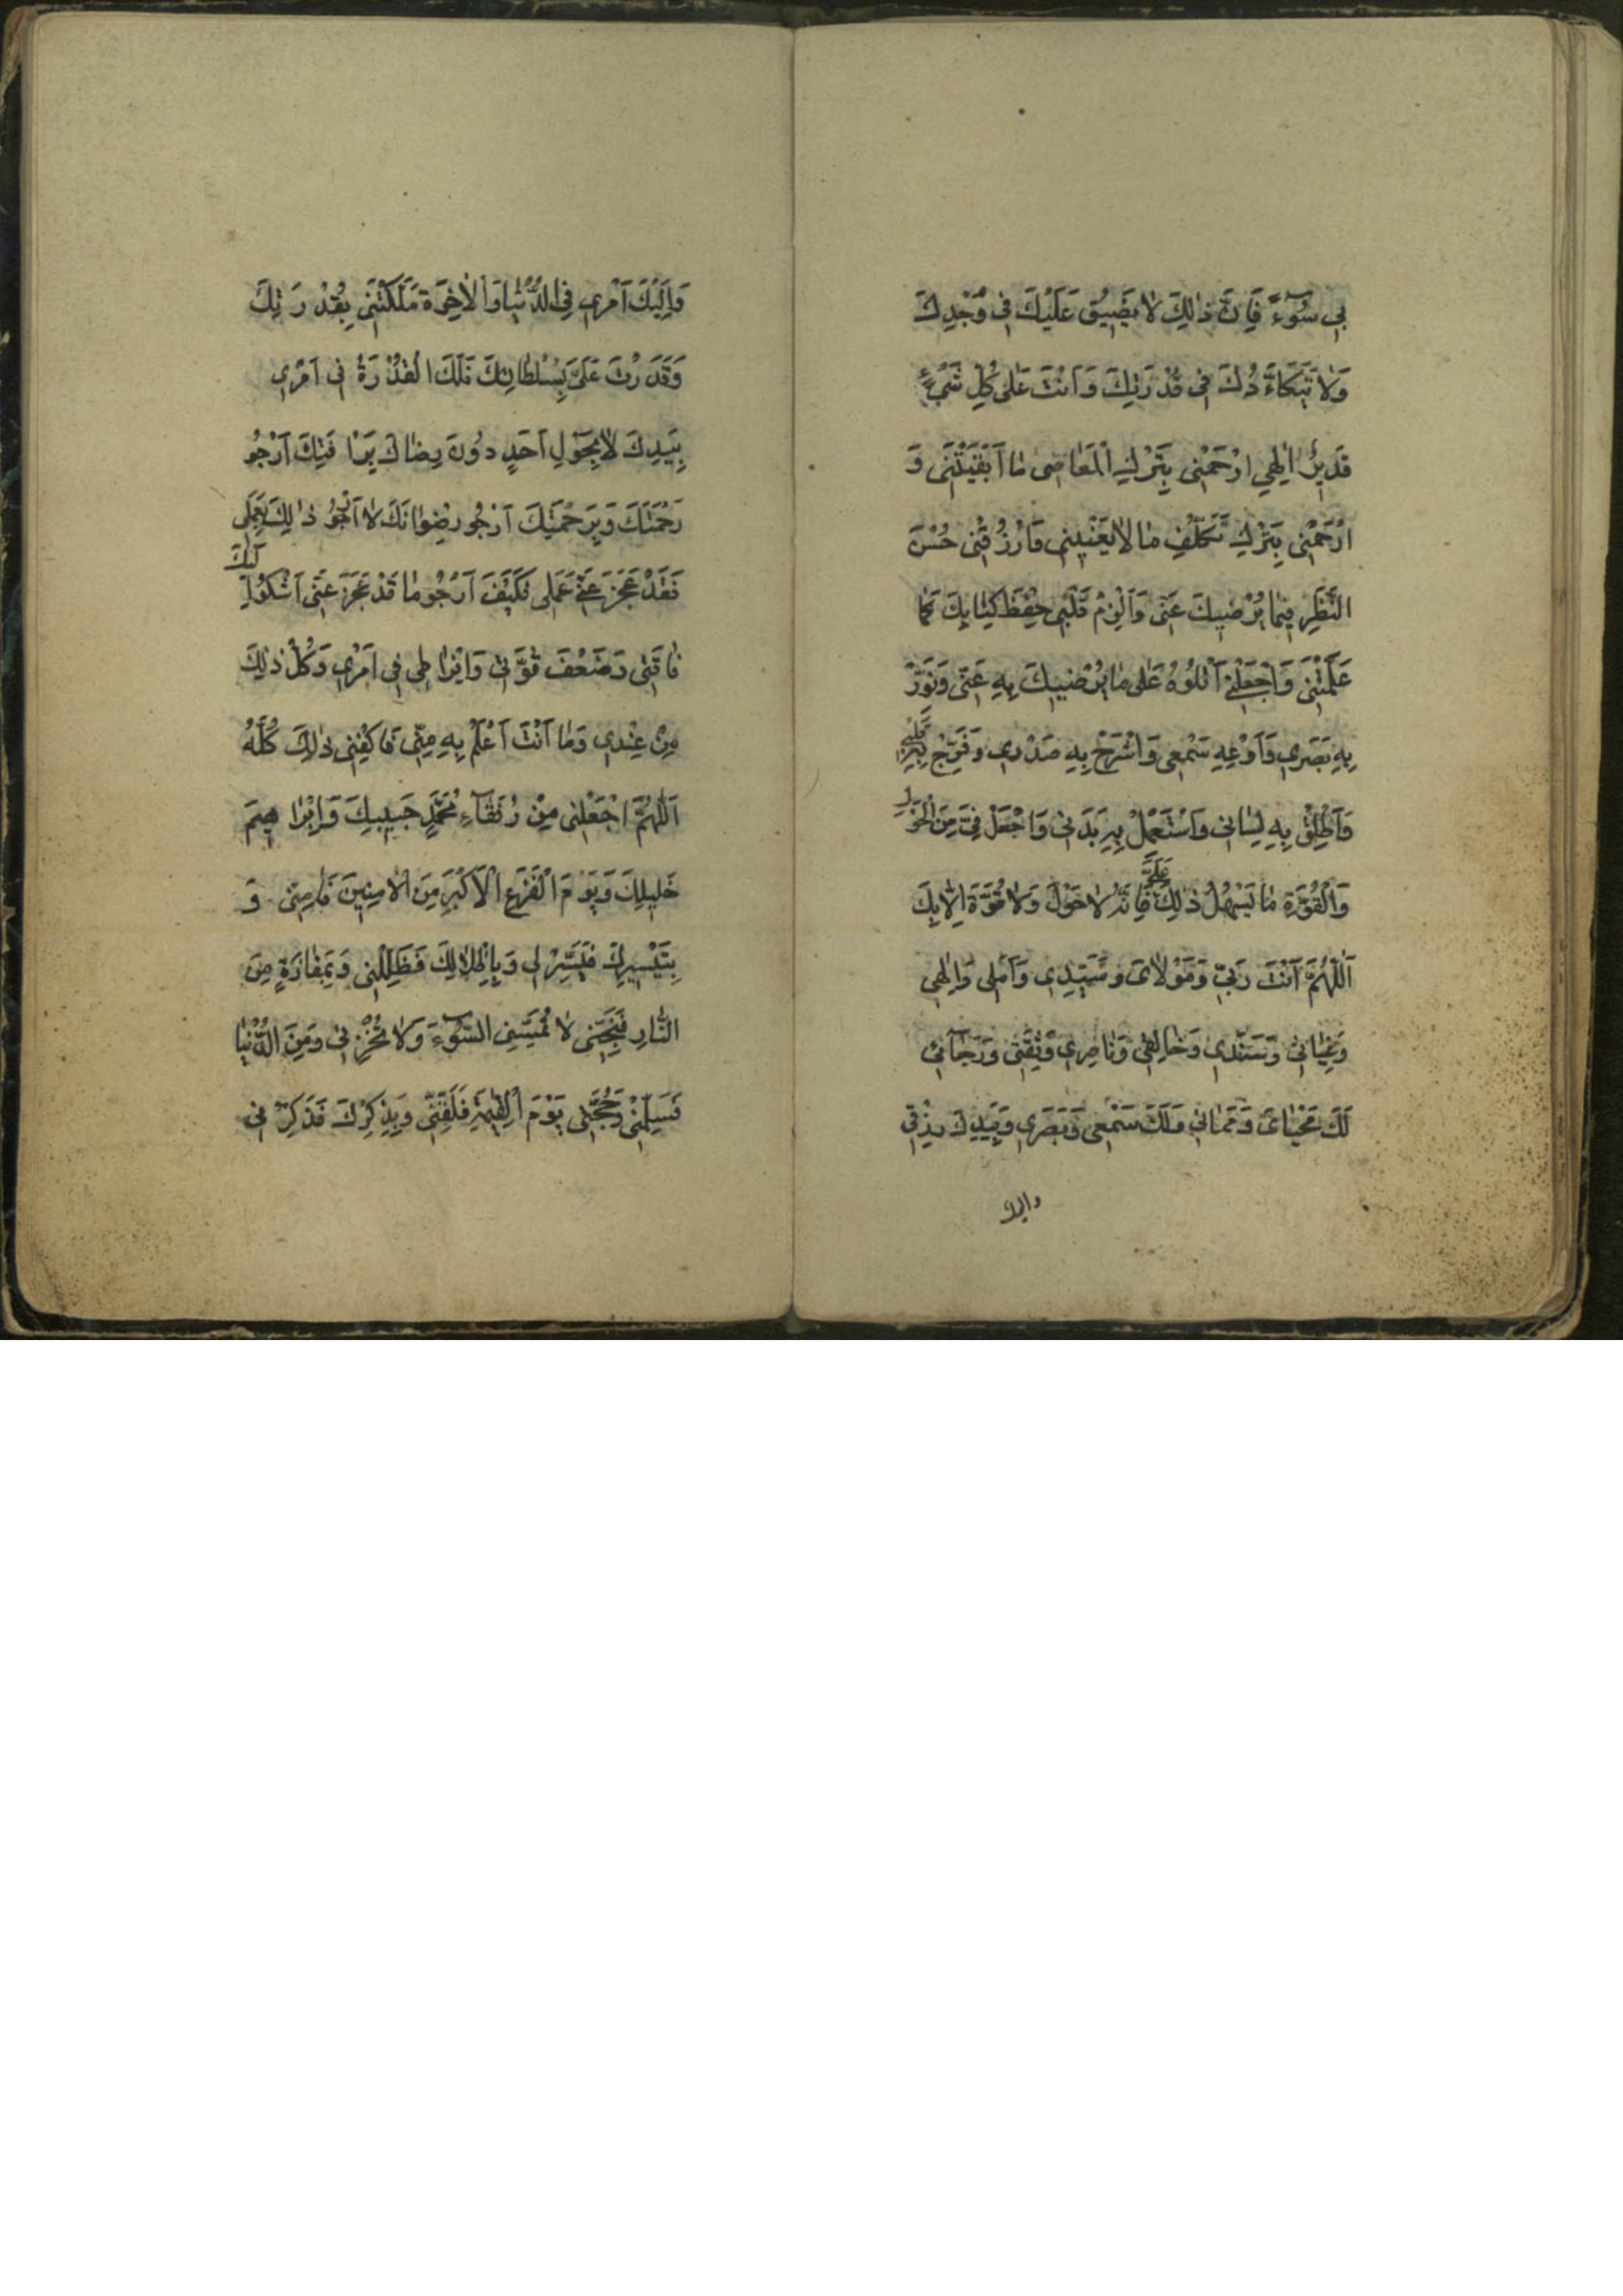 بِي سُوٓءً فَاِنَّ ذٰلِكَ لٰا يَضيِقُ عَلَيْكَ في وُجْدِكَ
وَلٰا يَتَكَاءَّدُكَ في قُدْرَتِكَ وَاَنْتَ عَلىٰ كُلِّ شَيْءٍ
قَديِرٌ اِلٰهي ارْحَمْني بِتَرْكِ الْمَعٰاصى مٰا اَبْقَيْتَنى وَ
ارْحَمْنى بِتَرْكِ تَكَلُّفِ مٰا لٰا يَعْنيٖنى وَارْزُقْنى حُسْنَ
النَّظَرِ فيمٰا يُرْضيٖكَ عَنّى وَاَلْزِمْ قَلْبى حِفْظَ كِتٰابِكَ كَمٰا
عَلَّمْتَنى وَاجْعَلْنى اَتْلُوُهُ عَلىٰ مٰا يُرْضيٖكَ بِهِ عَنّى وَنَوِّرْ
بِهِ بَصَري وَاَوْعِهِ سَمْعى وَاشْرَحْ بِهِ صَدْرى وَفَرِّجْ بِهِ قَلْبى
وَاَطْلِقْ بِهِ لِسٰانى وَاسْتَعْمِلْ بِهِ بَدَنى وَاجْعَلْ فِيَّ مِنَ الْحَوْلِ
وَالْقُوَّةِ مٰا يُسَهِّلُ ذٰلِكَ عَلَيَّ فَاِنَّهُ لٰا حَوْلَ وَلٰا قُوَّةَ اِلّٰا بِكَ
اَللّٰهُمَّ اَنْتَ رَبّى وَمَوْلٰاىَ وَسَيِّدِى وَاَمَلى وَاِلٰهى
وَغِيٰاثى وَسَنَدي وَخٰالِقى وَنٰاصِري وَثِقَتى وَرَجٰآئى
لَكَ مَحْيٰاىَ وَمَمٰاتي وَلَكَ سَمْعى وَبَصَري وَبِيَدِكَ رِزْقى
واليك
وَاِلَيْكَ اَمْري فِى الدُّنْيٰا وَالْاٰخِرَةِ مَلَكْتَنى بِقُدْرَتِكَ
وَقَدَرْتَ عَلَيَّ بِسُلْطٰانِكَ فَلَكَ الْقُدْرَةُ فى اَمْري
بِيَدِكَ لٰا يَحُوْلُ اَحَدٍ دوُنَ رِضٰاكَ بِرَأْفَتِكَ اَرْجُو
رَحْمَتَكَ وَبِرَحْمَتِكَ اَرْجُو رِضْوٰانَكَ لٰا اَرْجُو ذٰلِكَ بِعَمَلى
فَقَدْ عَجَزَ عَنّى عَمَلى فَكَيْفَ اَرْجُو مٰا قَدْ عَجَزَ عَنّى اَشْكُو اِلَيْكَ
فٰاقَتى وَضَعْفَ قُوَّتى وَاِفْرٰاطى فى اَمْري وَكُلُّ ذٰلِكَ
مِنْ عِنْدي وَمٰا اَنْتَ اَعْلَمُ بِهِ مِنّى فَاكْفِنى ذٰلِكَ كُلَّهُ
اَللّٰهُمَّ اجْعَلْنى مِنْ رُفَقٰآءِ مُحَمَّدٍ حَبيبِكَ وَاِبْرٰاهيمَ
خَليلِكَ وَيَوْمَ الْفَزَعِ الْاَكْبَرِ مِنَ الْاٰمِنينَ فَاٰمِنّى وَ
بِتَيْسيرِكَ فَيَسِّرْ لى وَبِاِظْلٰالِكَ فَظَلِّلْنى وَبِمَفٰازَةٍ مِنَ
النّٰارِ فَنَجِّنى لٰا تُمِسَّنِى السُّوٓءَ وَلٰا تُخْزِنى وَمِنَ الدُّنْيٰا
فَسَلِّمْنى وَحُجَّتى يَوْمَ الْقِيٰمَةِ فَلَقِّنّى وَبِذِكْرِكَ فَذَكِّرْنى